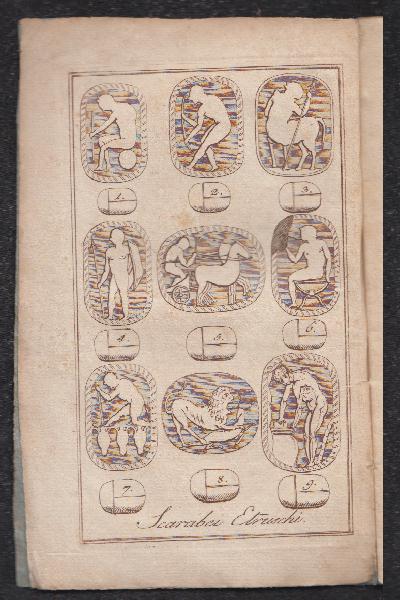 1.
2.
3.
4.
5.
6.
7.
8.
9.
Scarabei Etruschi.